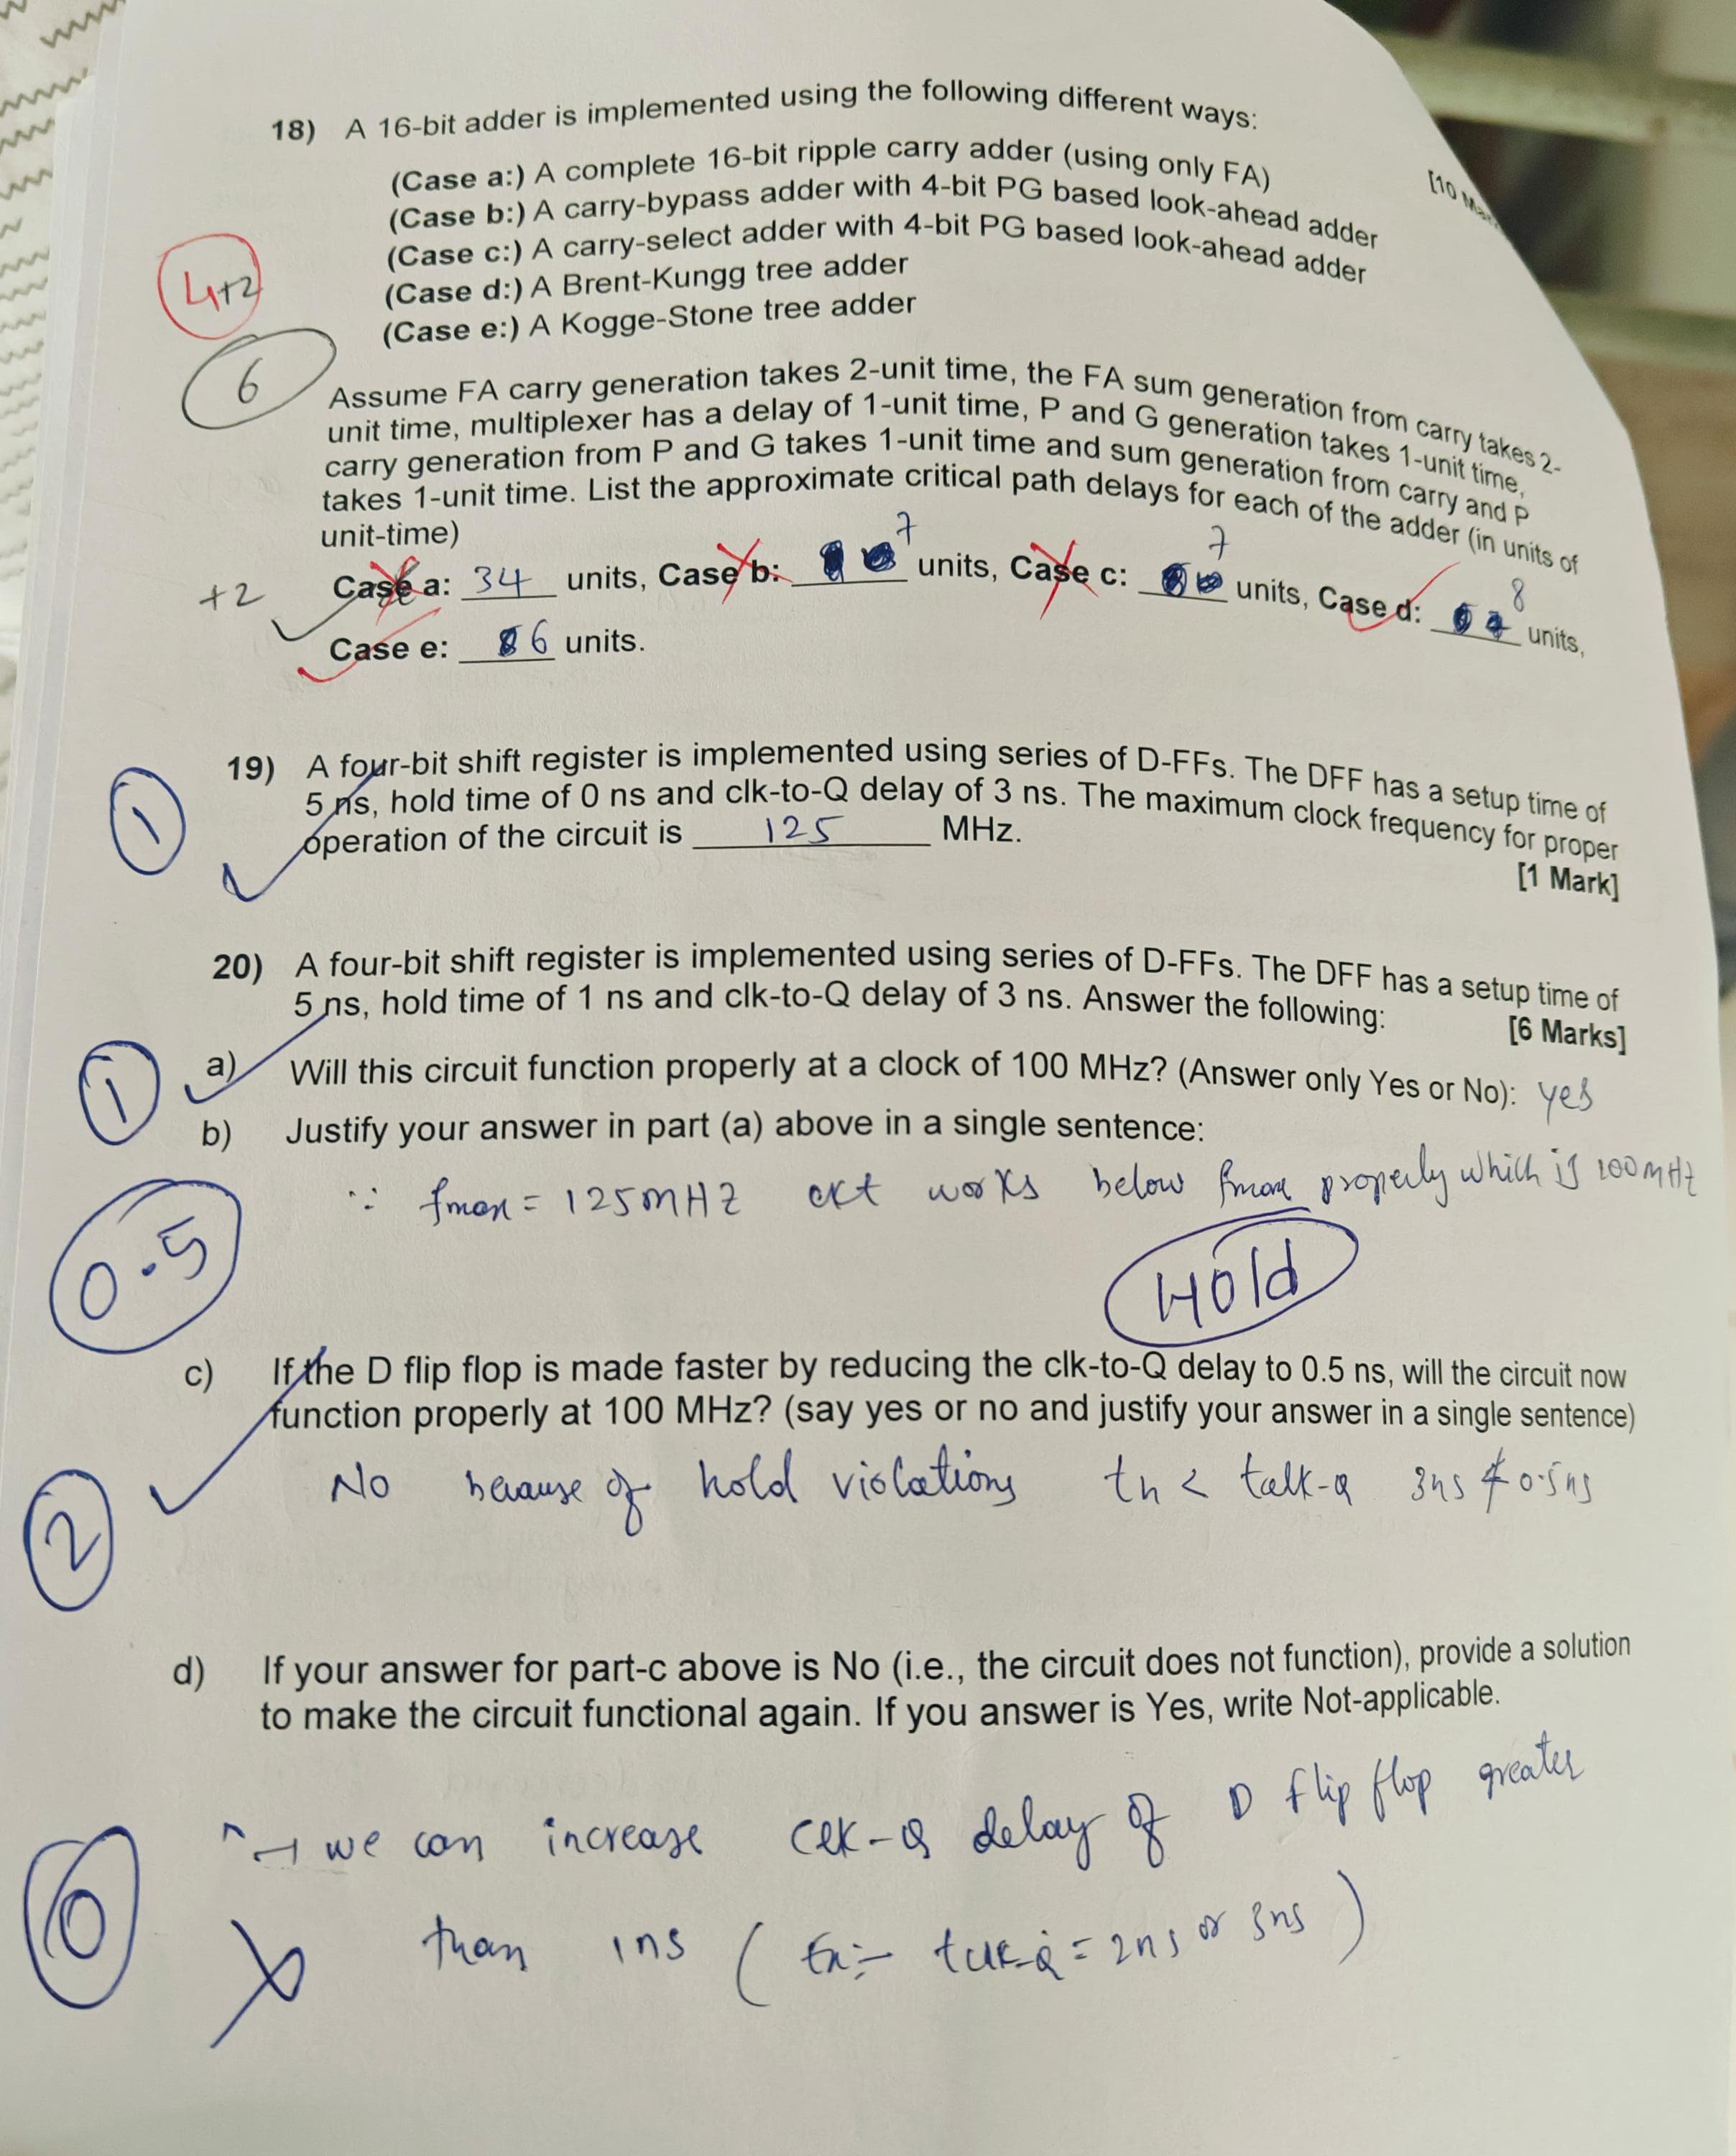 18) A 16-bit adder is implemented using the following different ways:
[10
(Case a:) A complete 16-bit ripple carry adder (using only FA)
(Case b:) A carry-bypass adder with 4-bit PG based look-ahead adder
(Case c:) A carry-select adder with 4-bit PG based look-ahead adder
(Case d:) A Brent-Kungg tree adder
(Case e:) A Kogge-Stone tree adder
4+2
6
Assume FA carry generation takes 2-unit time, the FA sum generation from carry takes 2-
unit time, multiplexer has a delay of 1-unit time, P and G generation takes 1-unit time,
carry generation from P and G takes 1-unit time and sum generation from carry and P
takes 1-unit time. List the approximate critical path delays for each of the adder (in units of
unit-time)
+2 Case a: 34 units, Case b: 7 units, Case c: 7 units, Case d: 8 units,
Case e: 6 units.
19) A four-bit shift register is implemented using series of D-FFs. The DFF has a setup time of
1 5 ns, hold time of 0 ns and clk-to-Q delay of 3 ns. The maximum clock frequency for proper
operation of the circuit is 125 MHz.
[1 Mark]
20) A four-bit shift register is implemented using series of D-FFs. The DFF has a setup time of
5 ns, hold time of 1 ns and clk-to-Q delay of 3 ns. Answer the following:
[6 Marks]
1 a) Will this circuit function properly at a clock of 100 MHz? (Answer only Yes or No): yes
b) Justify your answer in part (a) above in a single sentence:
∵ fmax = 125MHZ ckt works below fmax properly which is 100MHz
0.5
Hold
c) If the D flip flop is made faster by reducing the clk-to-Q delay to 0.5 ns, will the circuit now
function properly at 100 MHz? (say yes or no and justify your answer in a single sentence)
No because of hold violations th < tclk-Q 3ns ≮ 0.5ns
2
d) If your answer for part-c above is No (i.e., the circuit does not function), provide a solution
to make the circuit functional again. If you answer is Yes, write Not-applicable.
→ we can increase clk-Q delay of D flip flop greater
0
than 1ns ( tclk-Q = 2ns or 3ns )